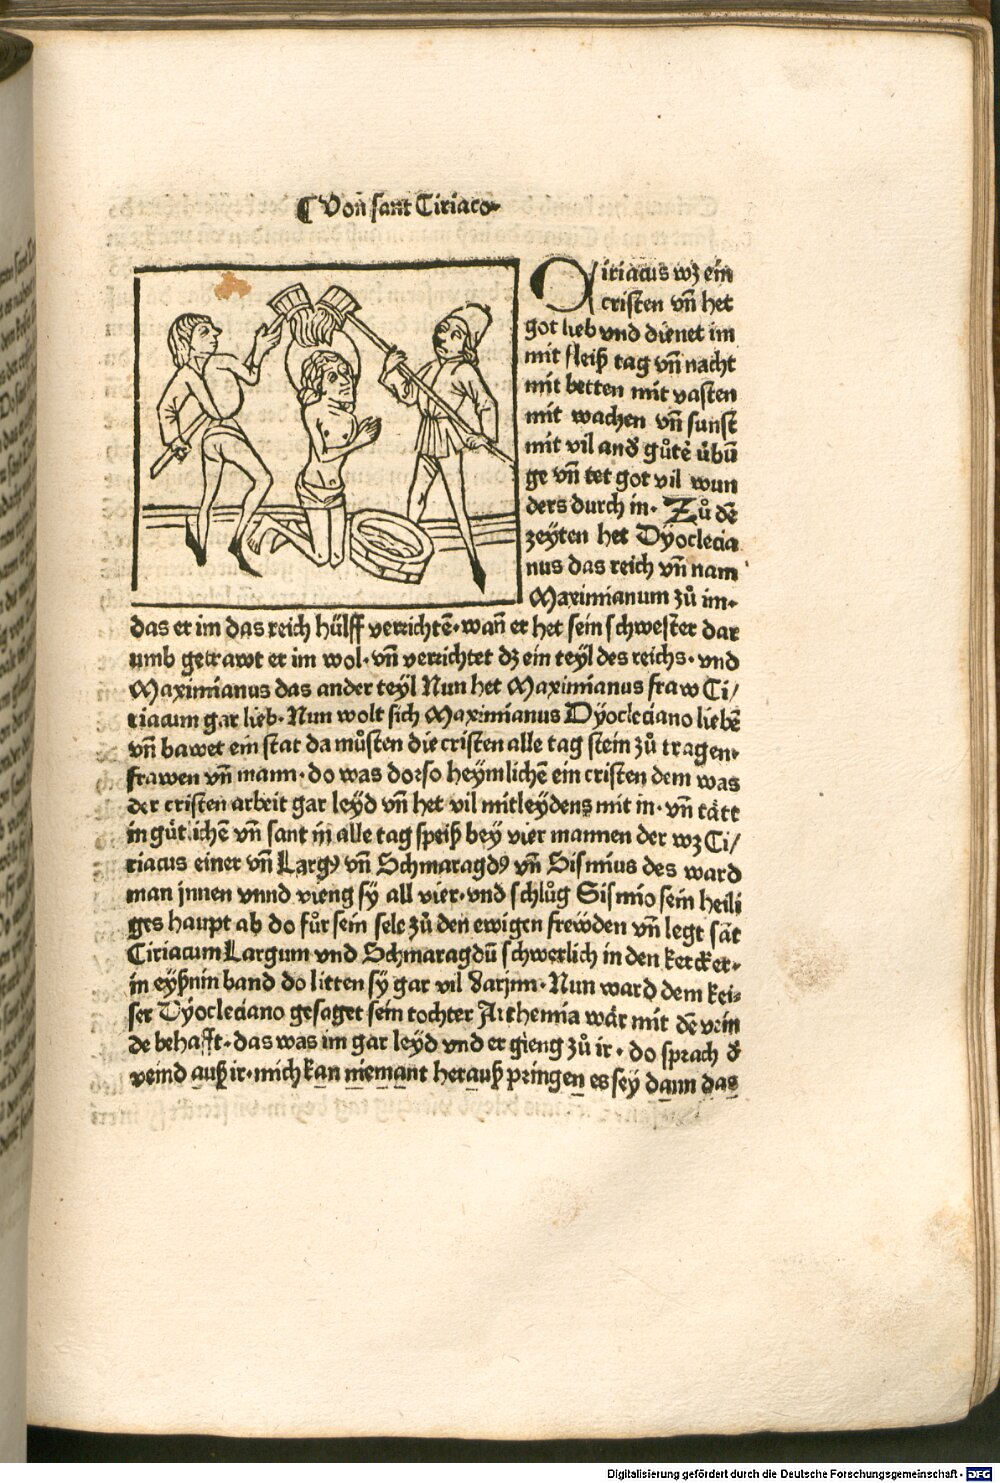 ¶ Von sant Ciriaco.
Ciriacus wz ein
cristen vn̄ het
got lieb vnd dienet im
mit fleiß tag vn̄ nacht
mit betten mit vasten
mit wachen vn̄ sunst
mit vil and̕ gůtē übū
ge vn̄ tet got vil wun
ders durch in. Zů dē
zeyten het Dyoclecia
nus das reich vn̄ nam
Maximianum zů im.
das er im das reich hülff verrichtē. wan̄ er het sein schwester dar
umb getrawt er im wol. vn̄ verrichtet dz ein teyl des reichs. vnd
Maximianus das ander teyl Nun het Maximianus fraw Ci/
riacum gar lieb. Nun wolt sich Maximianus Dyocleciano liebē
vn̄ bawet ein stat da můsten die cristen alle tag stein zů tragen.
frawen vn̄ mann. do was dorso heymlichē ein cristen dem was
der cristen arbeit gar leyd vn̄ het vil mitleydens mit in. vn̄ tätt
in gütlichē vn̄ sant in alle tag speiß bey vier mannen der wz Ci/
riacus einer vn̄ Largꝰ vn̄ Schmaragdꝰ vn̄ Sisinius des ward
man jnnen vnnd vieng sy all vier. vnd schlůg Sisinio sein heili
ges haupt ab do fůr sein sele zů den ewigen frewden vn̄ legt sāt
Ciriacum Largum vnd Schmaragdū schwerlich in den kercker.
in eyßnin band do litten sy gar vil darjnn. Nun ward dem kei=
ser Dyocleciano gesaget sein tochter Arthemia wär mit dē vein
de behafft. das was im gar leyd vnd er gieng zů ir. do sprach d̕
veind auß ir. mich kan niemant herauß pringen es sey dann das
Digitalisierung gefördert durch die Deutsche Forschungsgemeinschaft - DFG